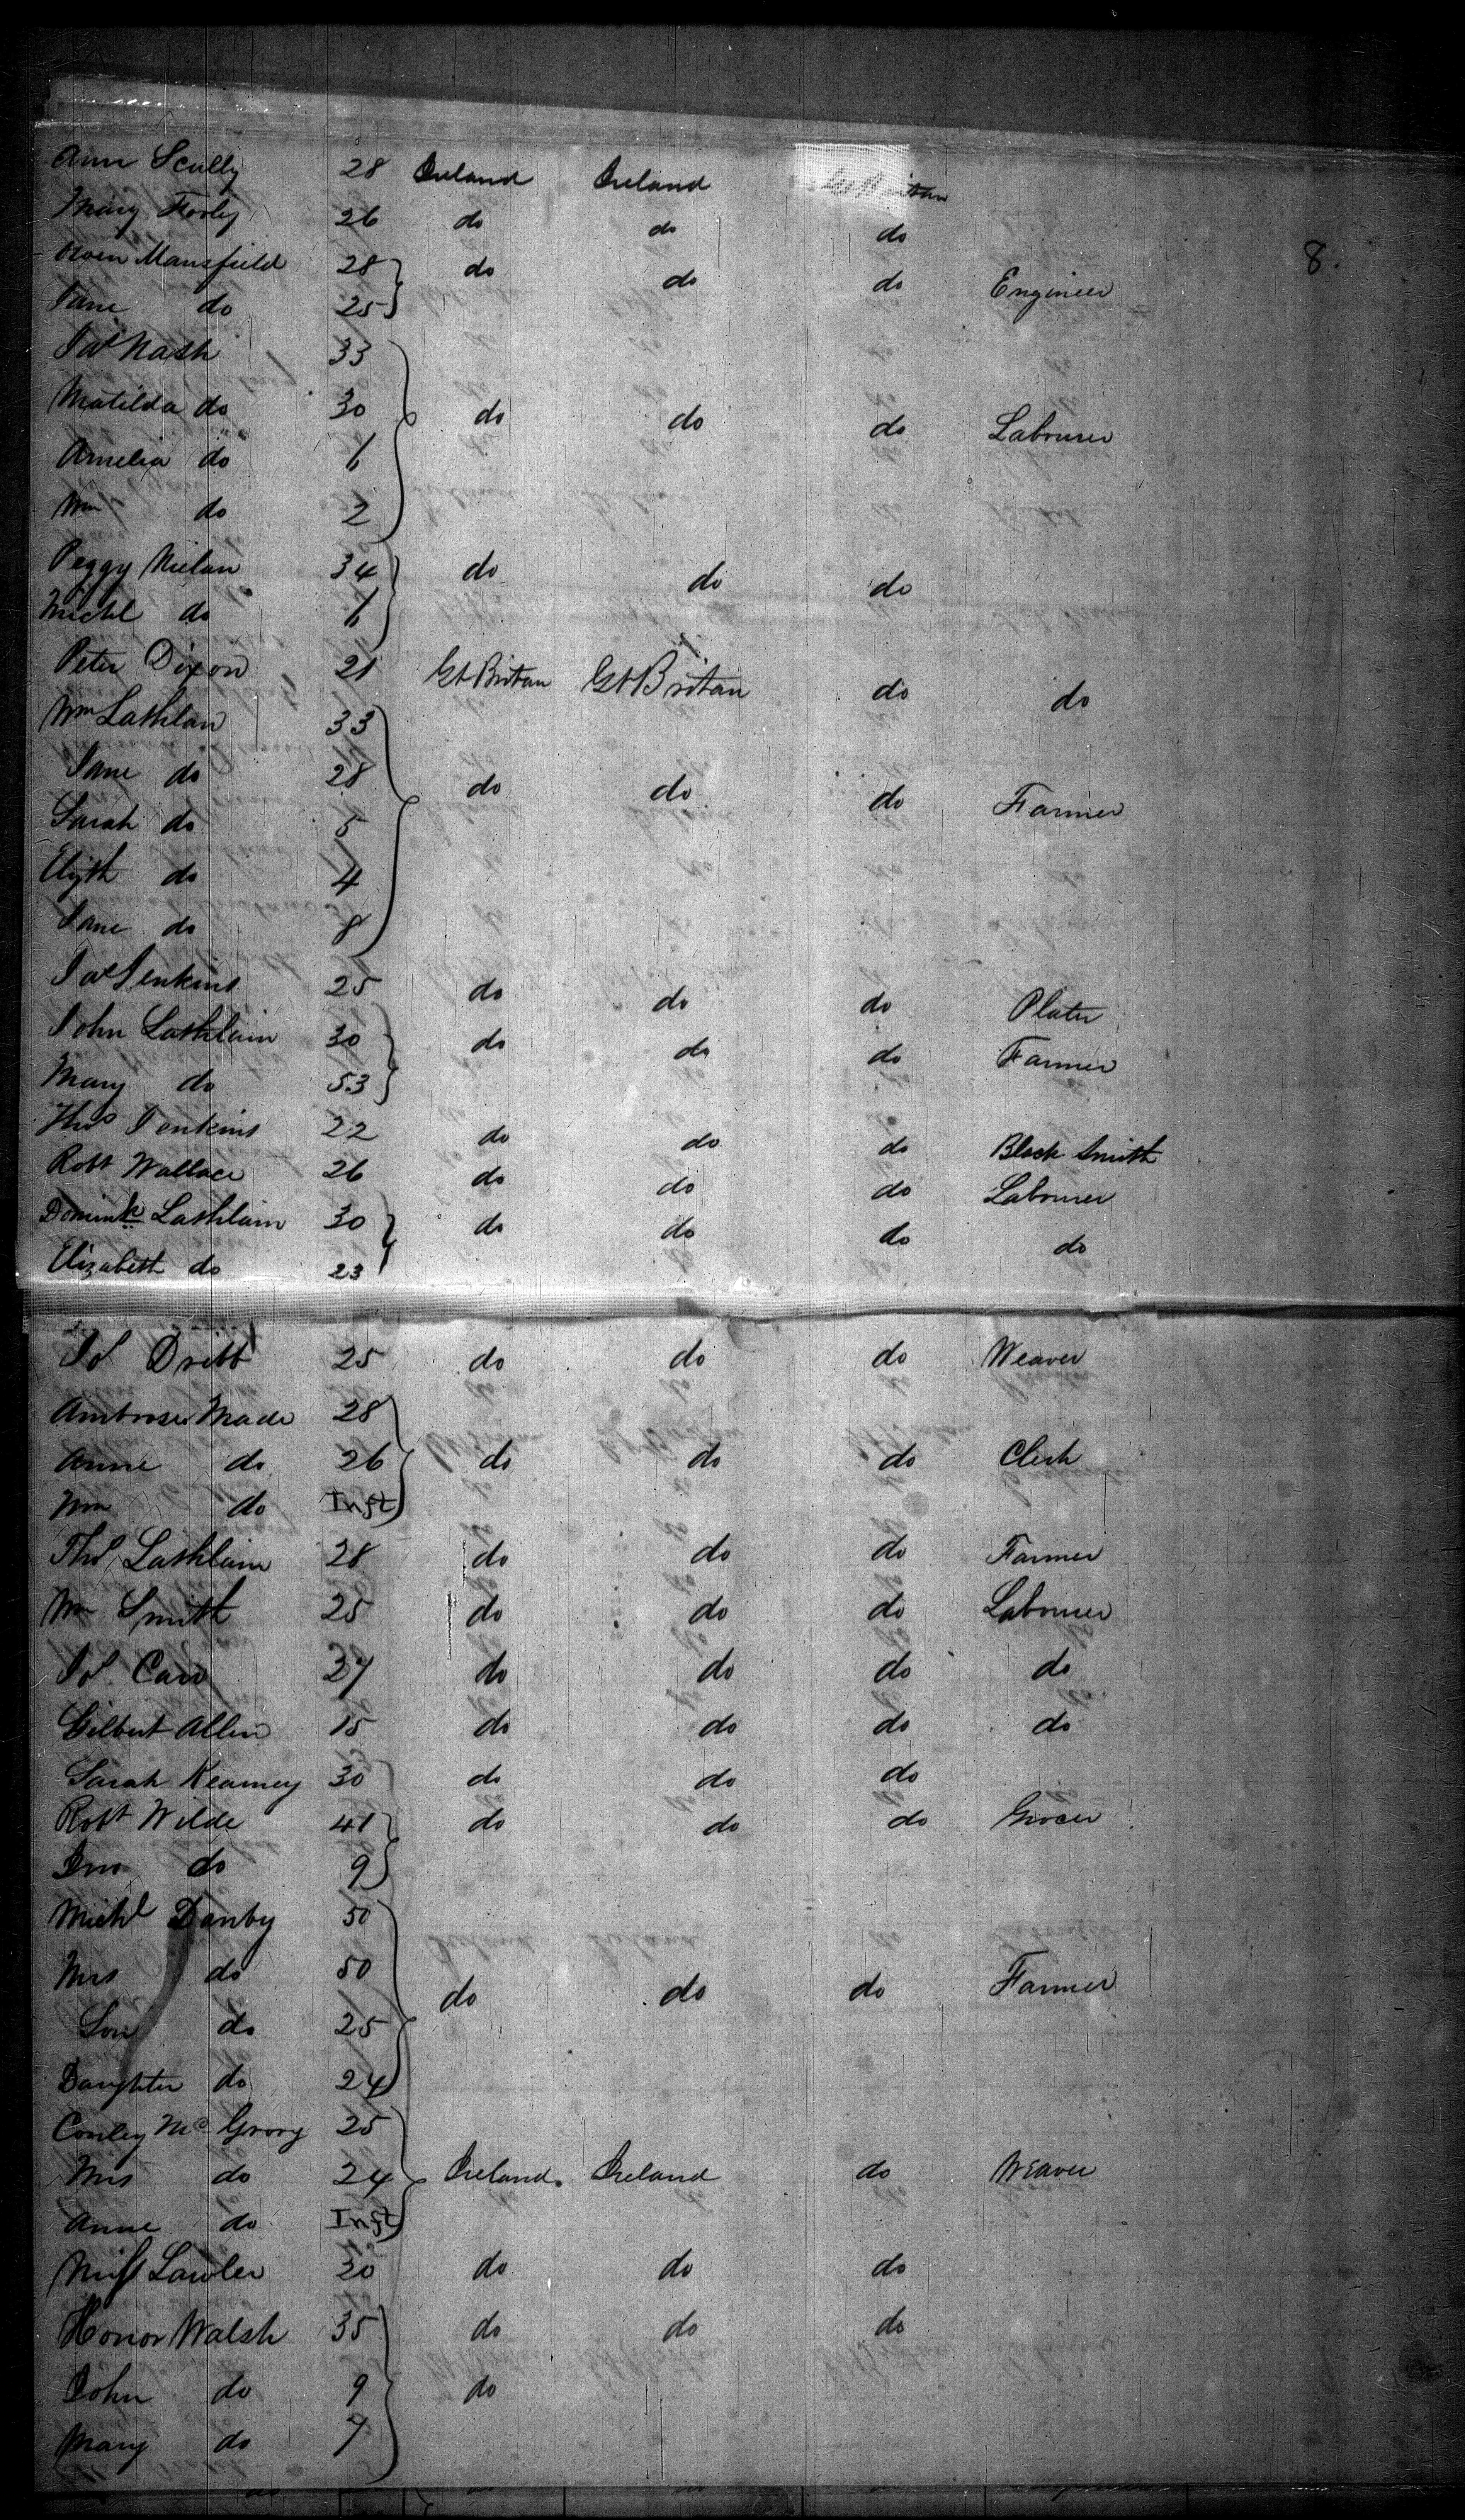 Ann Scully 28 Ireland Ireland Gt Britan
Mary Fooley 26 do do do
8.
Owen Mansfield 28 do do do Engineer
Jane do 25
Jas Nash 33
Matilda do 30 do do do Labourer
Amelia do 6
Wm do 2
Peggy Nielan 34 do do do
Michl do 6
Peter Dixon 21 Gt Britan Gt Britan do do
Wm Lathlan 33
Jane do 28 do do do Farmer
Sarah do 5
Elizth do 4
Jane do 8
Jas Jenkins 25 do do do Plater
John Lathlain 30 do do do Farmer
Mary do 53
Thos Jenkins 22 do do do Black Smith
Robt Wallace 26 do do do Labourer
Domink Lathlain 30 do do do do
Elizabeth do 23
Js Dribb 25 do do do Weaver
Ambrose Made 28
Anne do 26 do do do Clerk
Wm do Inft
Ths Lathlain 28 do do do Farmer
Wm Smith 25 do do do Labourer
Js Carr 27 do do do do
Gilbert Allen 15 do do do do
Sarah Kearney 30 do do do
Robt Wilde 41 do do do Grocer
Jno do 9
Michl Danby 50
Mrs do 50 do do do Farmer
Son do 25
Daughter do 24
Conley Mc Grory 25
Mrs do 24 Ireland. Ireland do Weaver
Anne do Inft
Miss Lawler 30 do do do
Honor Walsh 35 do do do
John do 9 do
Mary do 7